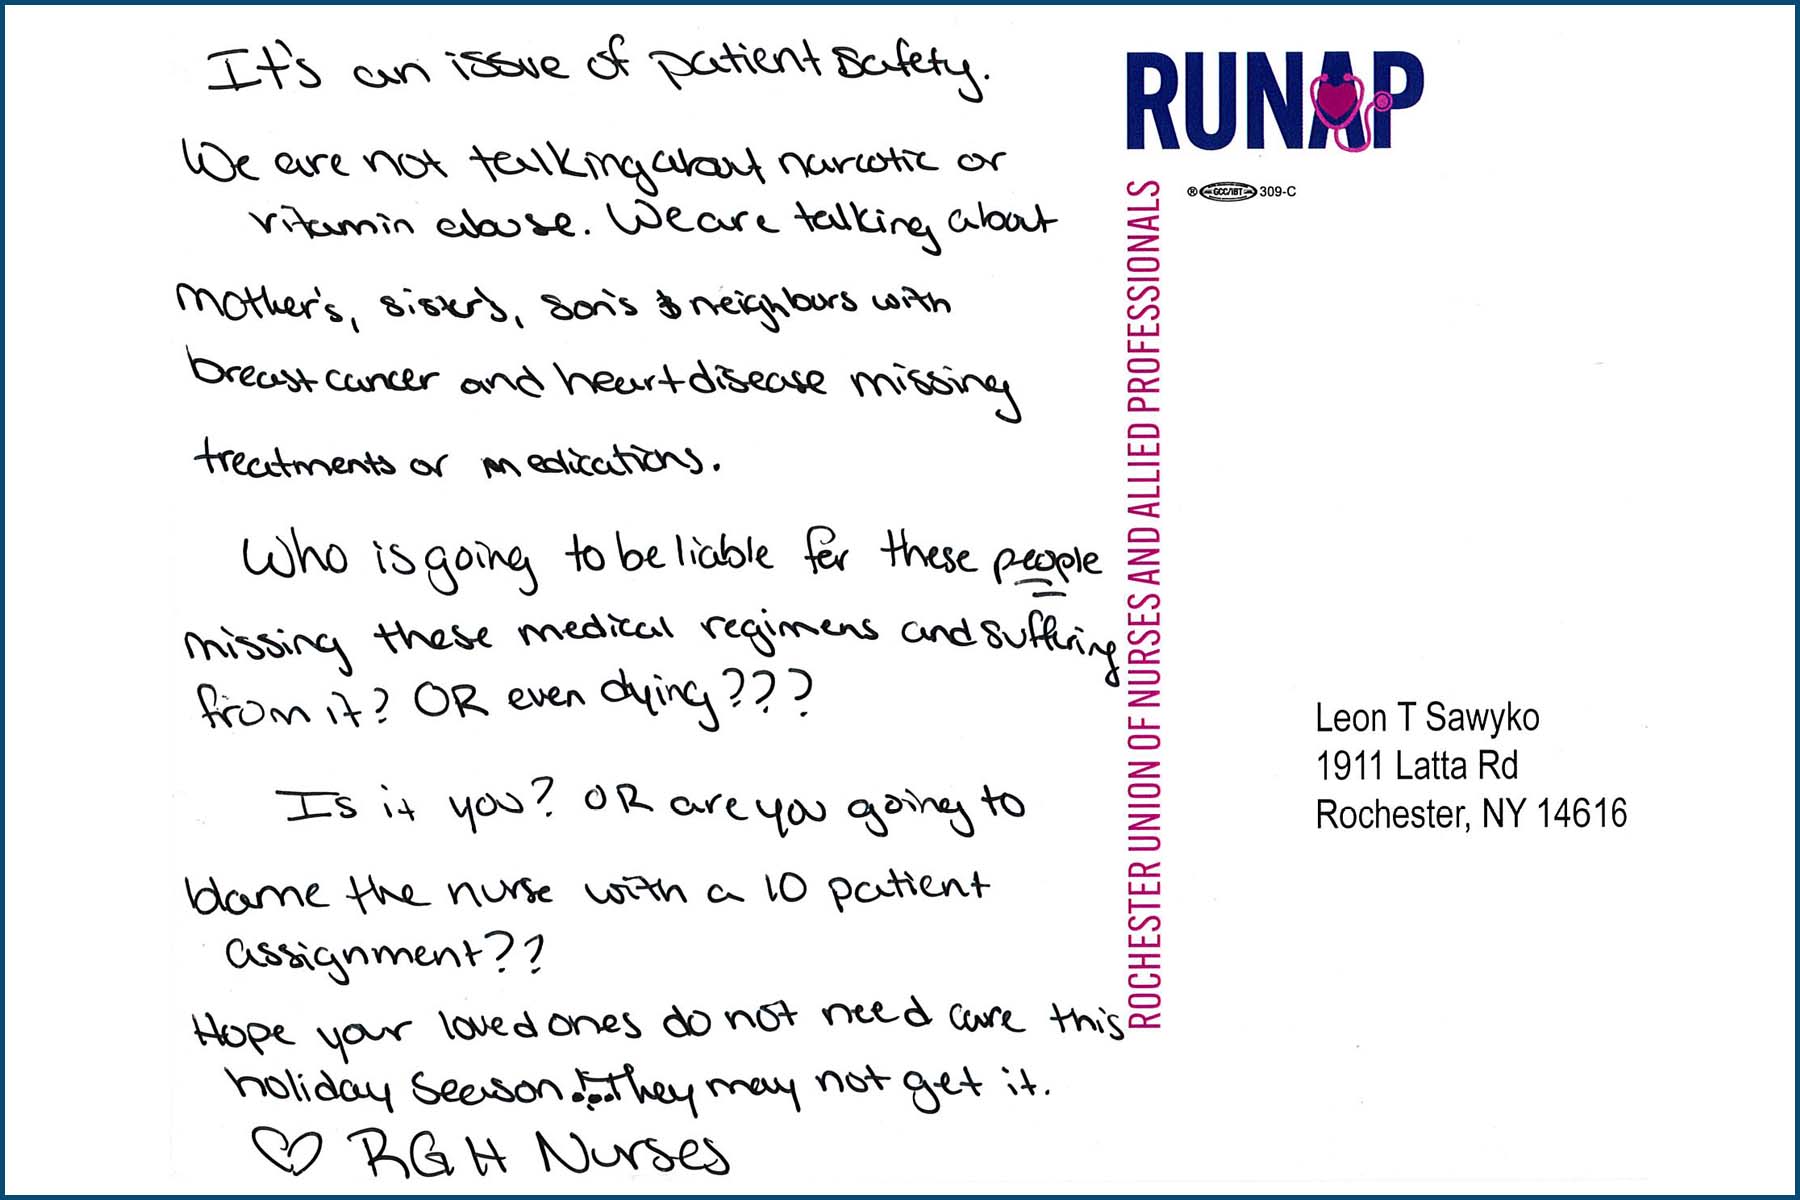 It's an issue of patient safety.
We are not talking about narcotic or
vitamin abuse. We are talking about
Mother's, sister's, son's & neighbors with
breast cancer and heart disease missing
treatments or medications.
Who is going to be liable for these people
missing these medical regimens and suffering
from it? OR even dying???
Is it you? OR are you going to
blame the nurse with a 10 patient
assignment??
Hope your loved ones do not need care this
holiday season... They may not get it.
♡ RGH Nurses
RUNAP
® GCC/IBT 309-C
ROCHESTER UNION OF NURSES AND ALLIED PROFESSIONALS
Leon T Sawyko
1911 Latta Rd
Rochester, NY 14616